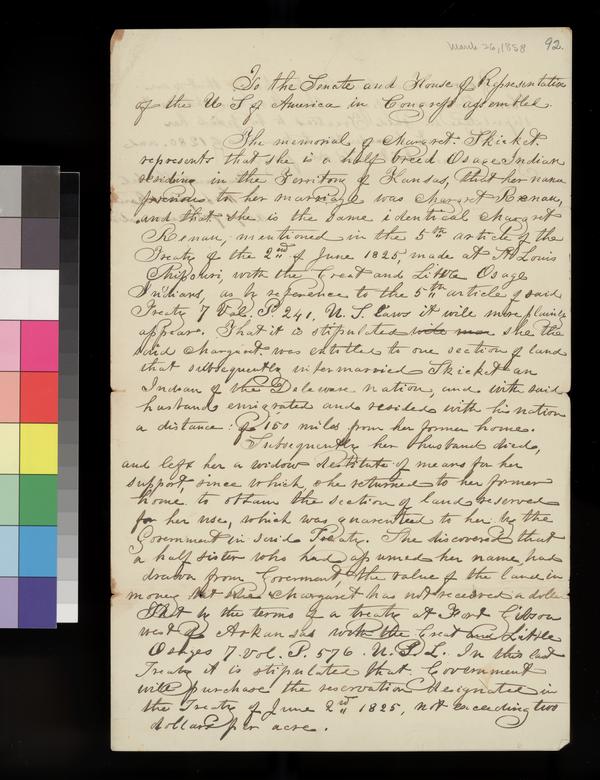 March 26, 1858 92.
To the Senate and House of Representatives
of the U. S. of America in Congress assembled.
The memorial of Margret. Shicket.
represents that she is a half breed Osage Indian
residing in the Territory of Kansas, that her name
previous to her marriage was Margret Renau,
and that she is the same identical Margret
Renau, mentioned in the 5th article of the
Treaty of the 2nd of June 1825, made at St Louis
Missouri, with the Great and Little Osage
Indians, as by reference to the 5th article of said
Treaty 7 Vol. P. 241. U. S. Laws it will more plainly
appear. That it is stipulated she the
said Margaret. was entitled to one section of land
that subsequently intermarried Shicket an
Indian of the Delaware nation, and with said
husband emigrated and resided with his nation
a distance of 150 miles from her former home.
Subsequently her husband died,
and left her a widow destitute of means for her
support, since which, she returned to her former
home to obtain the section of land reserved
for her use, which was guarenteed to her by the
Goverment in said Treaty. She discovered that
a half sister who had assumed her name, had
drawn from Goverment, the value of the land in
money but she Margaret has not received a dollar
That by the terms of a treaty at Fort Gibson
west of Arkansas with the Great and Little
Osages 7. Vol. P. 576. U. S. L. In this last
Treaty it is stipulated that Government
will purchase the reservation designated in
the Treaty of June 2nd 1825, not exceeding two
dollars per acre.